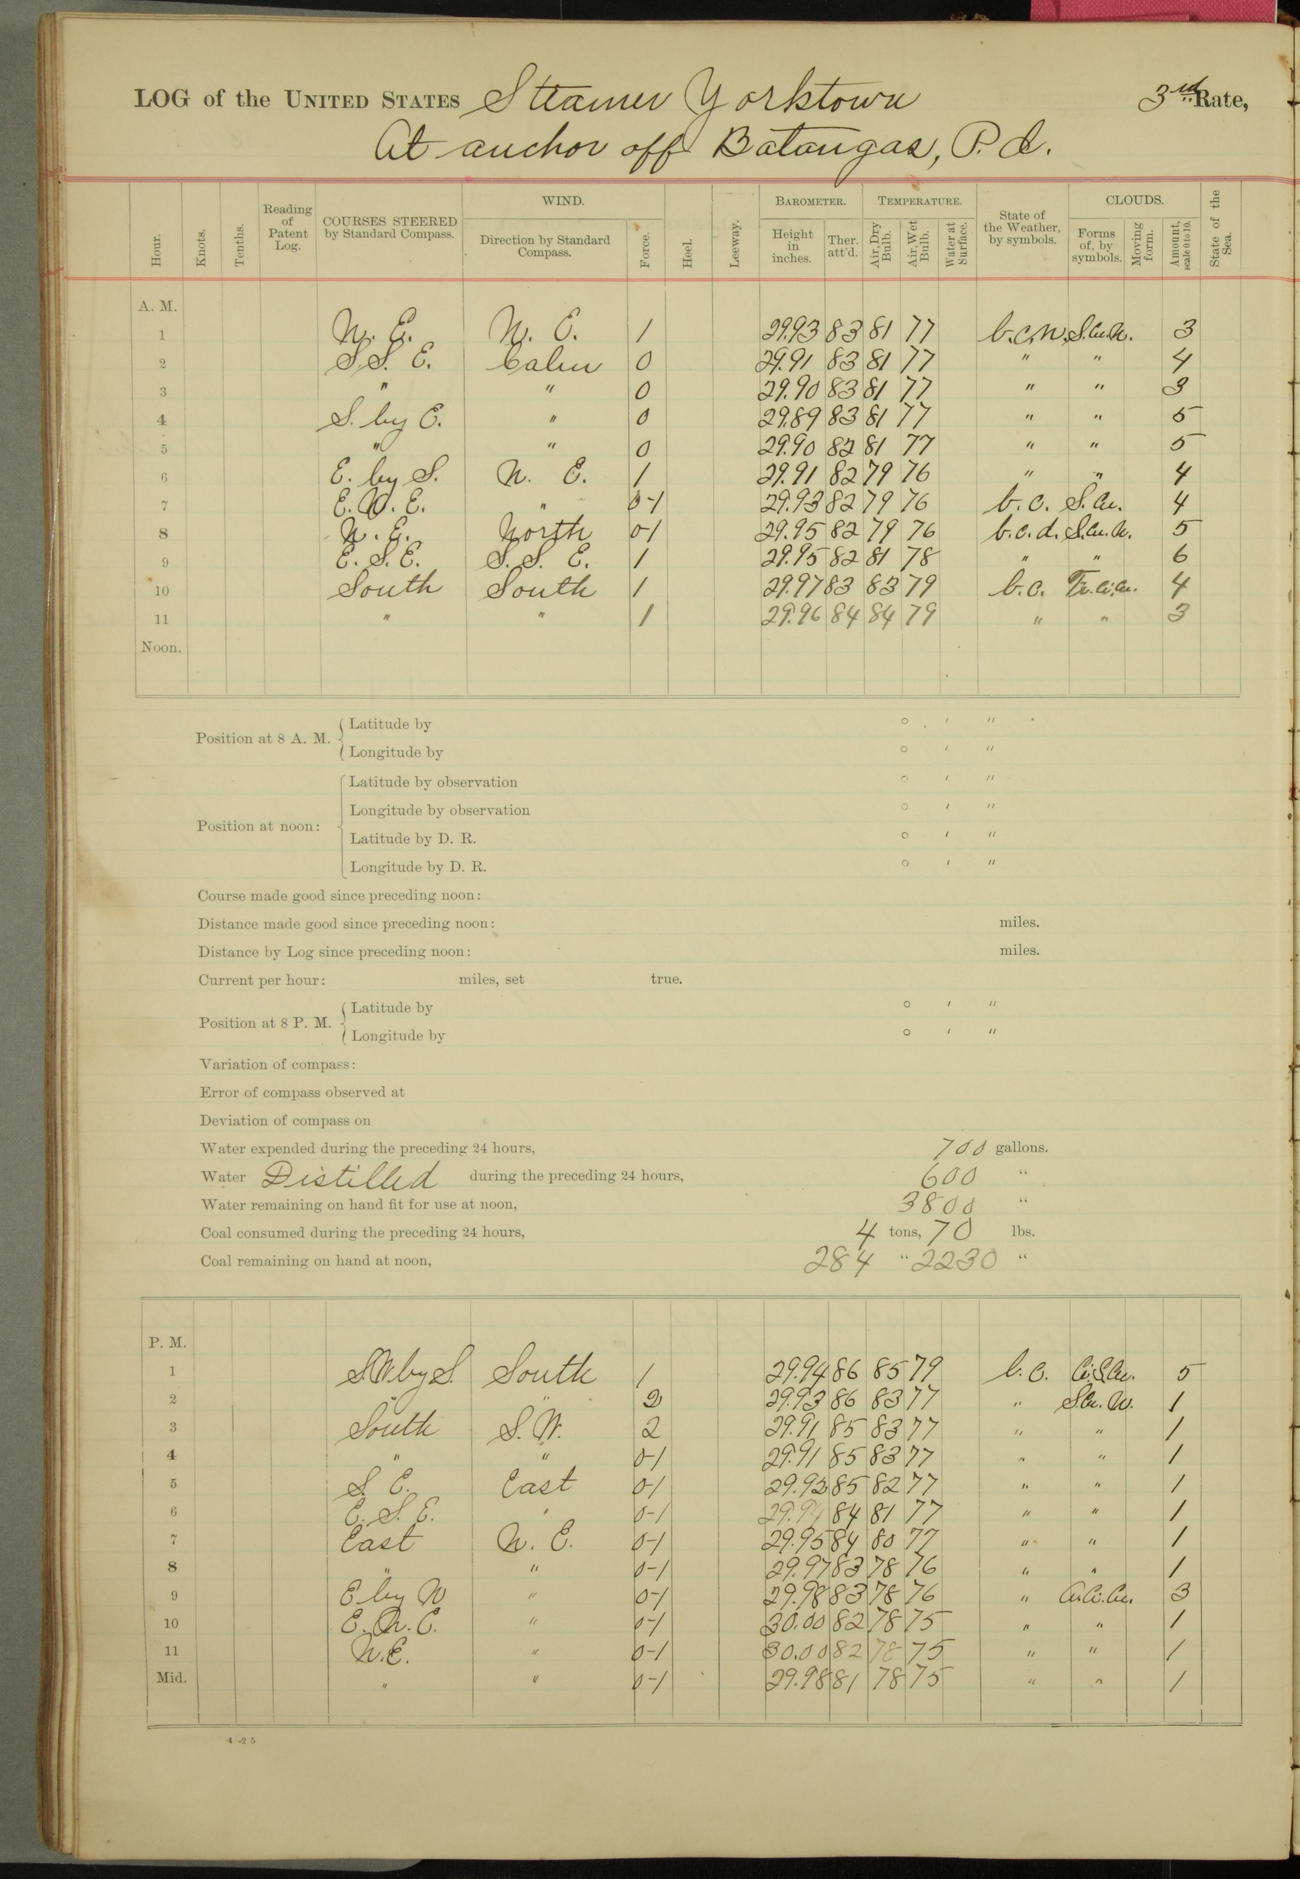 LOG of the UNITED STATES Steamer Yorktown 3rd Rate,
At anchor off Batangas, P. I.
Hour. Knots. Tenths. Reading of Patent Log. COURSES STEERED by Standard Compass. WIND. Direction by Standard Compass. Force. Heel. Leeway. BAROMETER. Height in inches. Ther. att'd. TEMPERATURE. Air, Dry Bulb. Air, Wet Bulb. Water at Surface. State of the Weather, by symbols. CLOUDS. Forms of, by symbols. Moving form. Amount, scale 0 to 10. State of the Sea.
A. M.
1 N. E. N. E. 1 29.93 83 81 77 b.c.w. S.Cu.N. 3
2 S.S. E. Calm 0 29.91 83 81 77 " " 4
3 " " 0 29.90 83 81 77 " " 3
4 S. by E. " 0 29.89 83 81 77 " " 5
5 " " 0 29.90 82 81 77 " " 5
6 E. by S. N. E. 1 29.91 82 79 76 " " 4
7 E. N. E. " 0-1 29.93 82 79 76 b. c. S.Cu. 4
8 N. E. North 0-1 29.95 82 79 76 b.c.d. S.Cu.N. 5
9 E. S.E. S. S. E. 1 29.95 82 81 78 " " 6
10 South South 1 29.97 83 83 79 b.c. Fr.Ci.Cu. 4
11 " " 1 29.96 84 84 79 " " 3
Noon.
Position at 8 A. M. Latitude by ° ' "
Longitude by ° ' "
Position at noon: Latitude by observation ° ' "
Longitude by observation ° ' "
Latitude by D. R. ° ' "
Longitude by D. R. ° ' "
Course made good since preceding noon:
Distance made good since preceding noon: miles.
Distance by Log since preceding noon: miles.
Current per hour: miles, set true.
Position at 8 P. M. Latitude by ° ' "
Longitude by ° ' "
Variation of compass:
Error of compass observed at
Deviation of compass on
Water expended during the preceding 24 hours, 700 gallons.
Water Distilled during the preceding 24 hours, 600 "
Water remaining on hand fit for use at noon, 3800 "
Coal consumed during the preceding 24 hours, 4 tons, 70 lbs.
Coal remaining on hand at noon, 284 " 2230 "
P. M.
1 S.W by S. South 1 29.94 86 85 79 b. c. Ci.S.Cu. 5
2 " " 2 29.93 86 83 77 " S.Cu. N. 1
3 South S. W. 2 29.91 85 83 77 " " 1
4 " " 0-1 29.91 85 83 77 " " 1
5 S. E. East 0-1 29.92 85 82 77 " " 1
6 E. S. E. " 0-1 29.94 84 81 77 " " 1
7 East N. E. 0-1 29.95 84 80 77 " " 1
8 " " 0-1 29.97 83 78 76 " " 1
9 E by N " 0-1 29.98 83 78 76 " Ci.Cu. 3
10 E. N. E. " 0-1 30.00 82 78 75 " " 1
11 N.E. " 0-1 30.00 82 78 75 " " 1
Mid. " " 0-1 29.98 81 78 75 " " 1
4-25